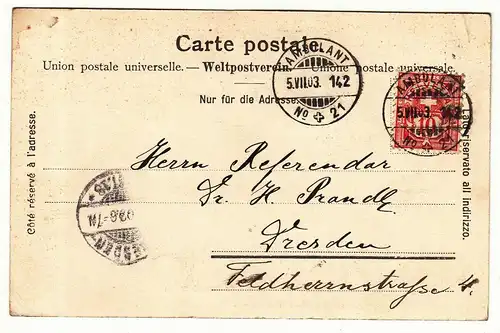 Carte postale.
Union postale universelle. — Weltpostverein. — Unione postale universale.
Nur für die Adresse.
AMBULANT
5.VII.03. 142
No 21
AMBULANT
5.VII.03. 142
No 21
10
Côté réservé à l'adresse.
Lato riservato all indirizzo.
Herrn Referendar
Dr. H. Prandl
Dresden
Feldherrnstrasse 4.
DRESDEN